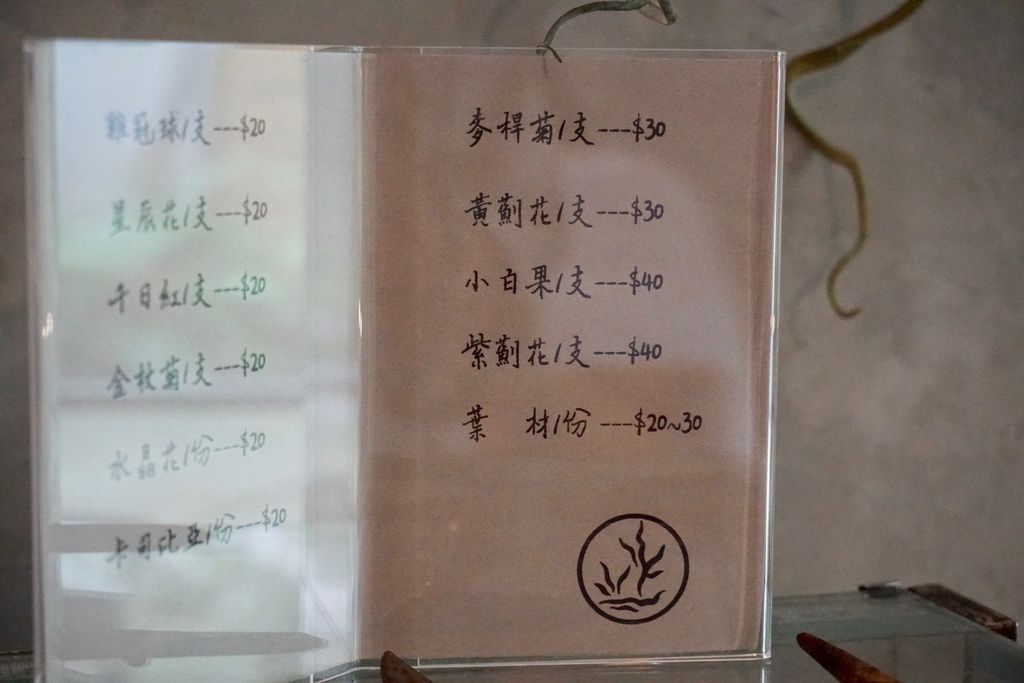 雞冠球/支---$20
星辰花/支---$20
千日紅/支---$20
金杖菊/支---$20
水晶花/份---$20
卡司比亞/份---$20
麥稈菊/支---$30
黃薊花/支---$30
小白果/支---$40
紫薊花/支---$40
葉 材/份 ---$20~30